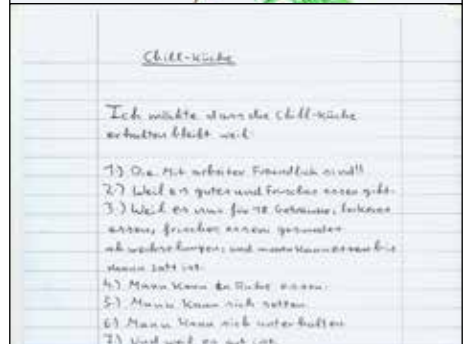 Chill-Küche
Ich möchte dass die Chill-Küche
erhalten bleibt weil:
1) Die Mitarbeiter Freundlich sind!!
2) Weil es gutes und Frisches essen gibt.
3) Weil es nur für 1€ Getränke, leckeres
essen, frisches essen gesundes
abwechslungen, und mann kann essen bis
mann satt ist.
4) Mann kann in Ruhe essen.
5) Mann kann sich
6) Mann kann sich unterhalten
7) Und weil es gut ist.